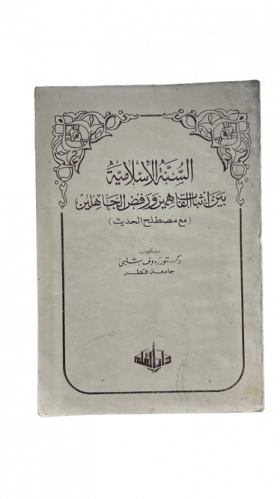 السنة الإسلامية
بين إثبات الفاهمين ورفض الجاهلين
(مع مصطلح الحديث)
دكتور رءوف شلبي
جامعة قطر
دار القلم